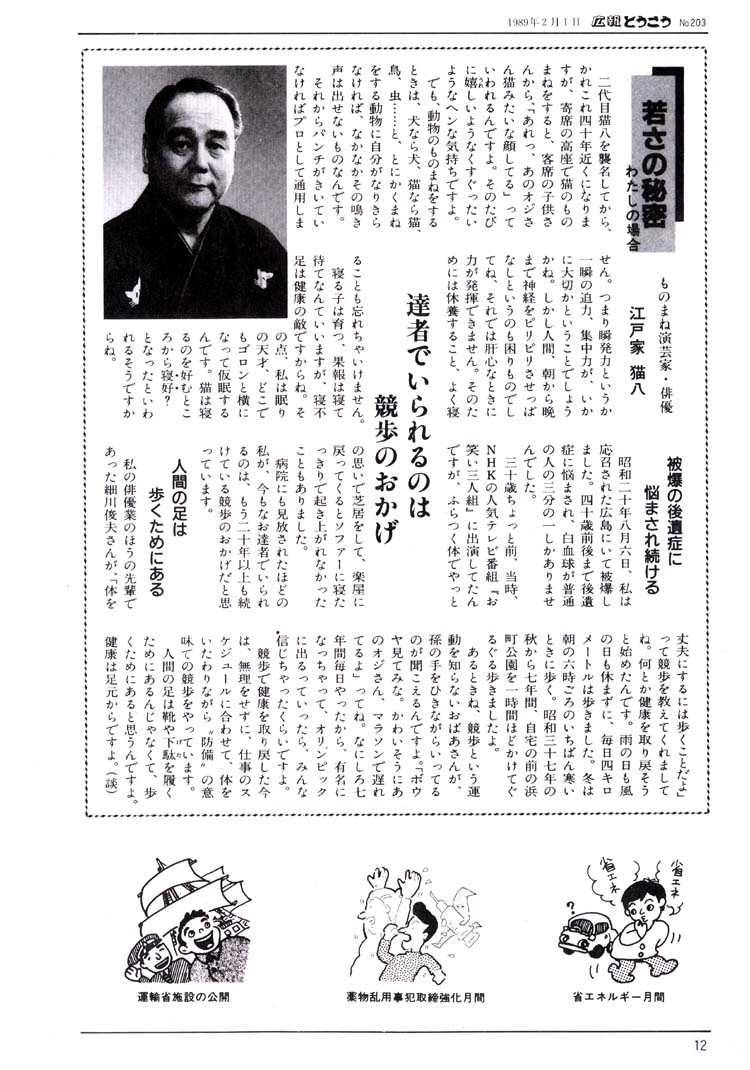 1989年2月1日 広報とうこう No.203
若さの秘密
わたしの場合
ものまね演芸家・俳優
江戸家 猫八
二代目猫八を襲名してから、
かれこれ四十年近くになりま
すが、寄席の高座で猫のもの
まねをすると、客席の子供さ
んから、「あれっ、あのオジさ
ん猫みたいな顔してる」って
いわれるんですよ。そのたび
に嬉しいようなくすぐったい
ようなヘンな気持ちですよ。
でも、動物のものまねをする
ときは、犬なら犬、猫なら猫、
鳥、虫……と、とにかくまね
をする動物に自分がなりきら
なければ、なかなかその鳴き
声は出せないものなんです。
それからパンチがきいてい
なければプロとして通用しま
せん。つまり瞬発力というか
一瞬の迫力、集中力が、いか
に大切かということでしょう
かね。しかし人間、朝から晩
まで神経をピリピリさせっぱ
なしというのも困りものでし
てね、それでは肝心なときに
力が発揮できません。そのた
めには休養すること、よく寝
達者でいられるのは
競歩のおかげ
ることも忘れちゃいけません。
寝る子は育つ、果報は寝て
待てなんていいますが、寝不
足は健康の敵ですからね。そ
の点、私は眠り
の天才、どこで
もゴロンと横に
なって仮眠する
んです。猫は寝
るのを好むとこ
ろから寝好?
となったといわ
れるそうですか
らね。
被爆の後遺症に
悩まされ続ける
昭和二十年八月六日、私は
応召された広島にいて被爆し
ました。四十歳前後まで後遺
症に悩まされ、白血球が普通
の人の三分の一しかありませ
んでした。
三十歳ちょっと前、当時、
NHKの人気テレビ番組『お
笑い三人組』に出演してたん
ですが、ふらつく体でやっと
の思いで芝居をして、楽屋に
戻ってくるとソファーに寝た
っきりで起き上がれなかった
こともありました。
病院にも見放されたほどの
私が、今もなお達者でいられ
るのは、もう二十年以上も続
けている競歩のおかげだと思
っています。
人間の足は
歩くためにある
私の俳優業のほうの先輩で
あった細川俊夫さんが、「体を
丈夫にするには歩くことだよ」
って競歩を教えてくれまして
ね。何とか健康を取り戻そう
と始めたんです。雨の日も風
の日も休まずに、毎日四キロ
メートルは歩きました。冬は
朝の六時ごろのいちばん寒い
ときに歩く。昭和三十七年の
秋から七年間、自宅の前の浜
町公園を一時間ほどかけてぐ
るぐる歩きましたよ。
あるときね、競歩という運
動を知らないおばあさんが、
孫の手をひきながらいってる
のが聞こえるんですよ。「ボウ
ヤ見てみな。かわいそうにあ
のオジさん、マラソンで遅れ
てるよ」ってね。なにしろ七
年間毎日やったから、有名に
なっちゃって、オリンピック
に出るっていったら、みんな
信じちゃったくらいですよ。
競歩で健康を取り戻した今
は、無理をせずに、仕事のス
ケジュールに合わせて、体を
いたわりながら〝防備〟の意
味での競歩をやっています。
人間の足は靴や下駄を履く
ためにあるんじゃなくて、歩
くためにあると思うんですよ。
健康は足元からですよ。(談)
運輸省施設の公開
薬物乱用事犯取締強化月間
省エネ
省エネ
?
省エネルギー月間
12